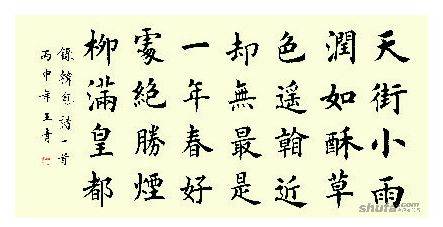 天街小雨
潤如酥草
色遥看近
却無最是
一年春好
處絕勝煙
柳滿皇都
錄韓愈詩一首
丙申年王青
shufa.com